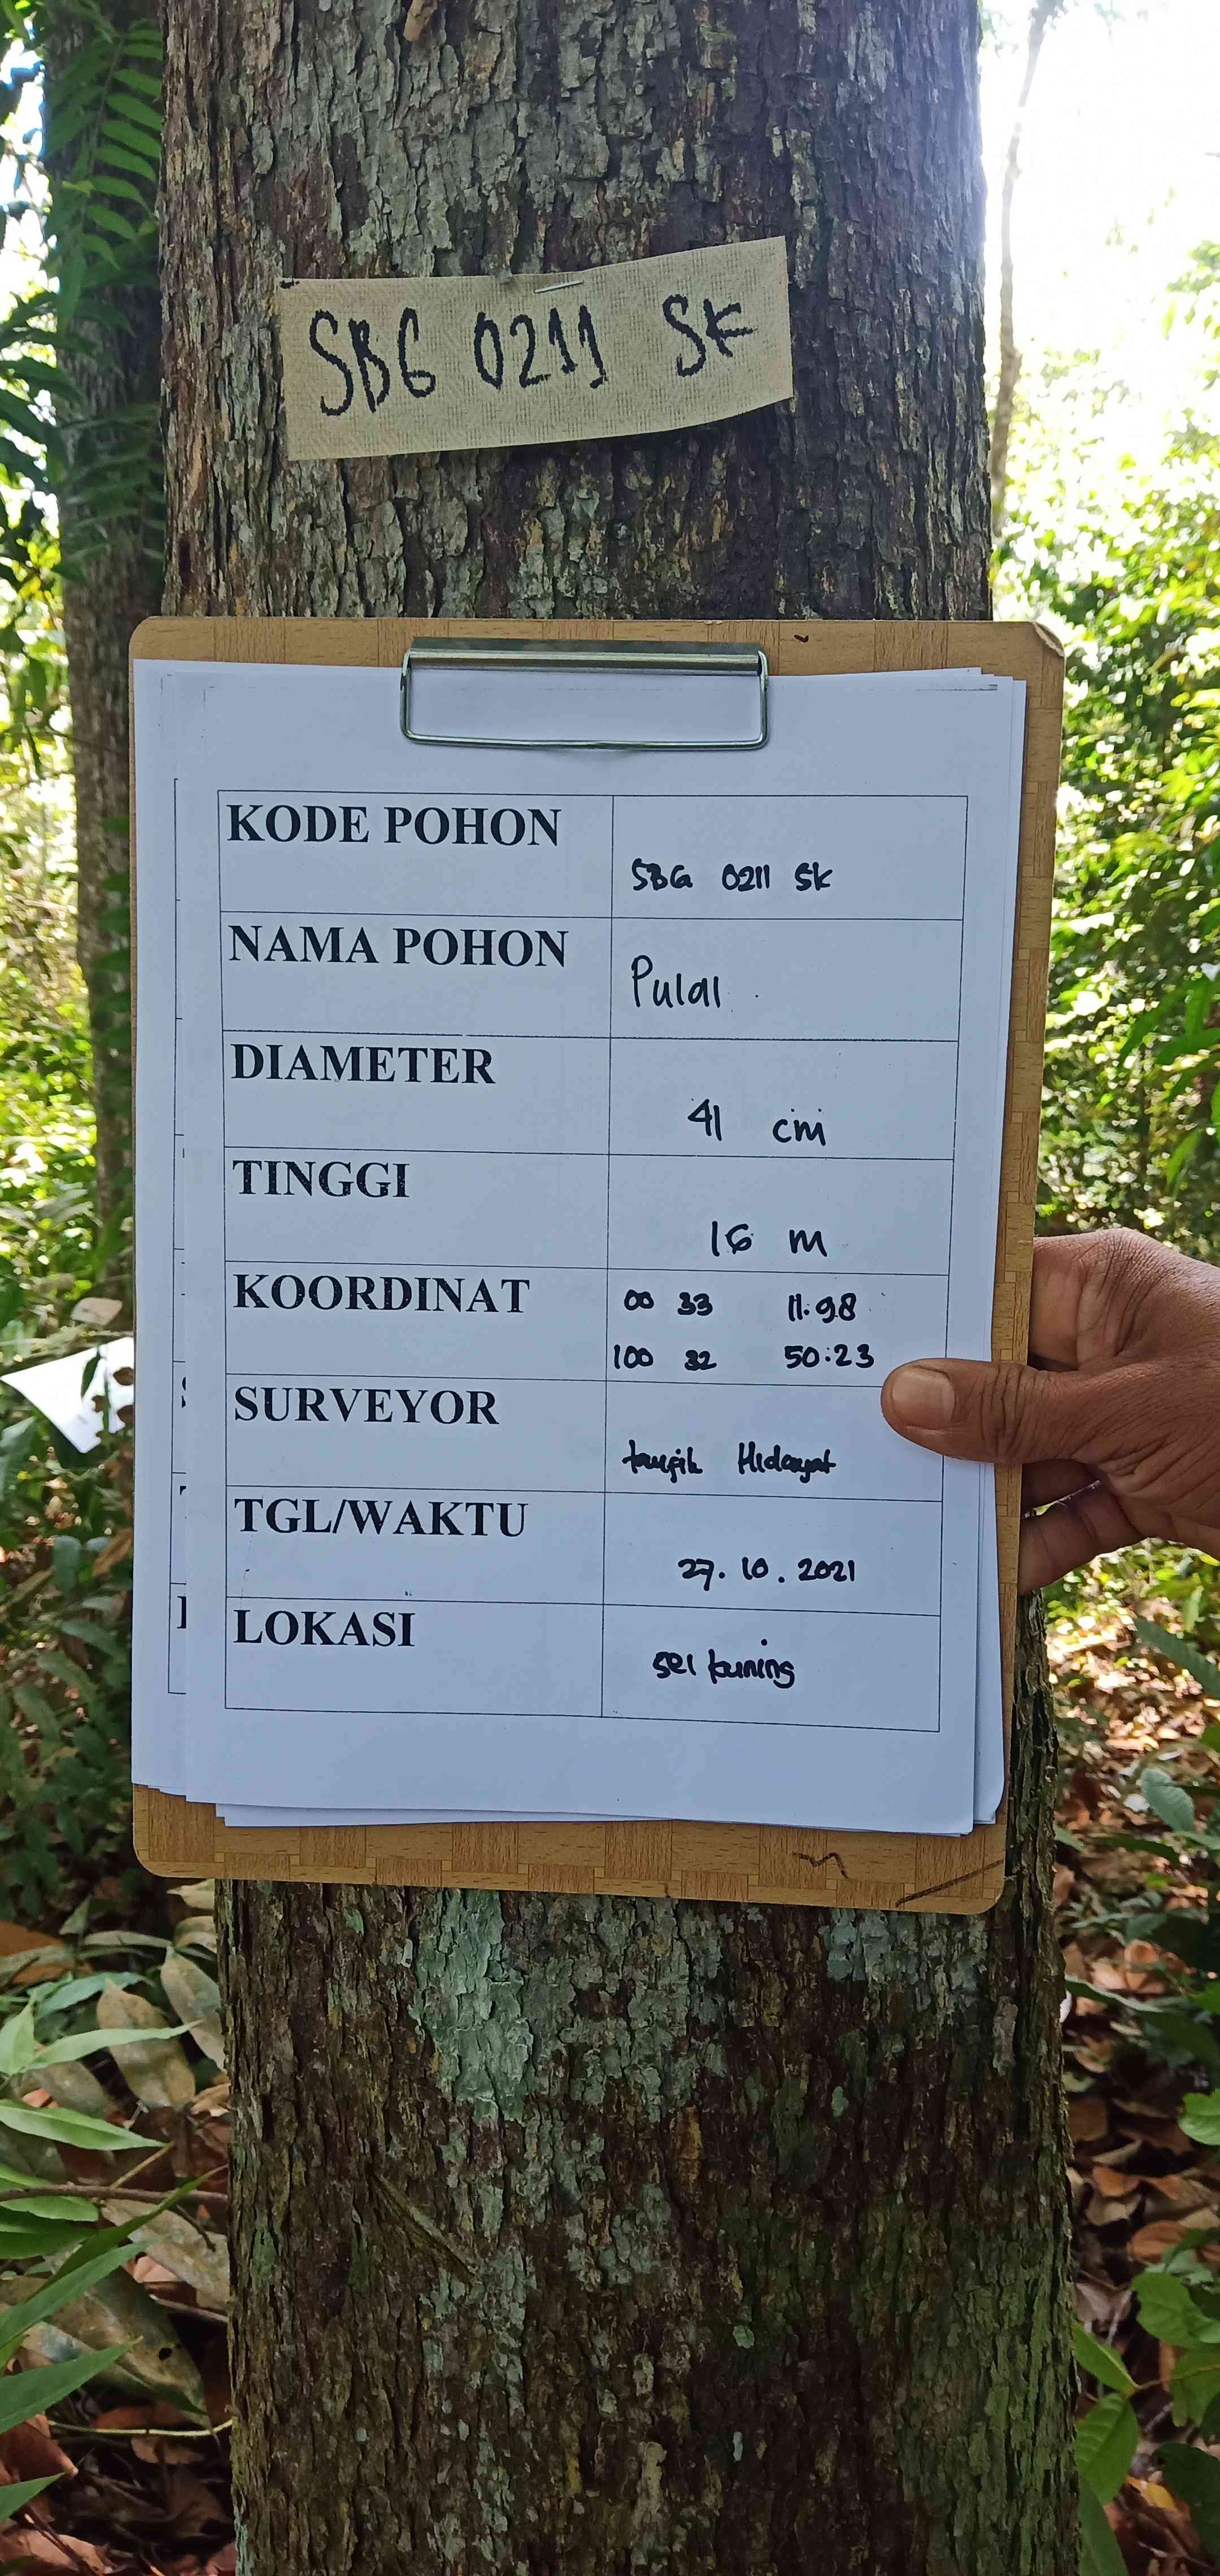 SBG 0211 SK
KODE POHON
SBG 0211 SK
NAMA POHON
Pulai
DIAMETER
41 cm
TINGGI
16 m
KOORDINAT
00 33 11.98
100 32 50.23
SURVEYOR
taufik Hidayat
TGL/WAKTU
27.10.2021
LOKASI
sei kuning